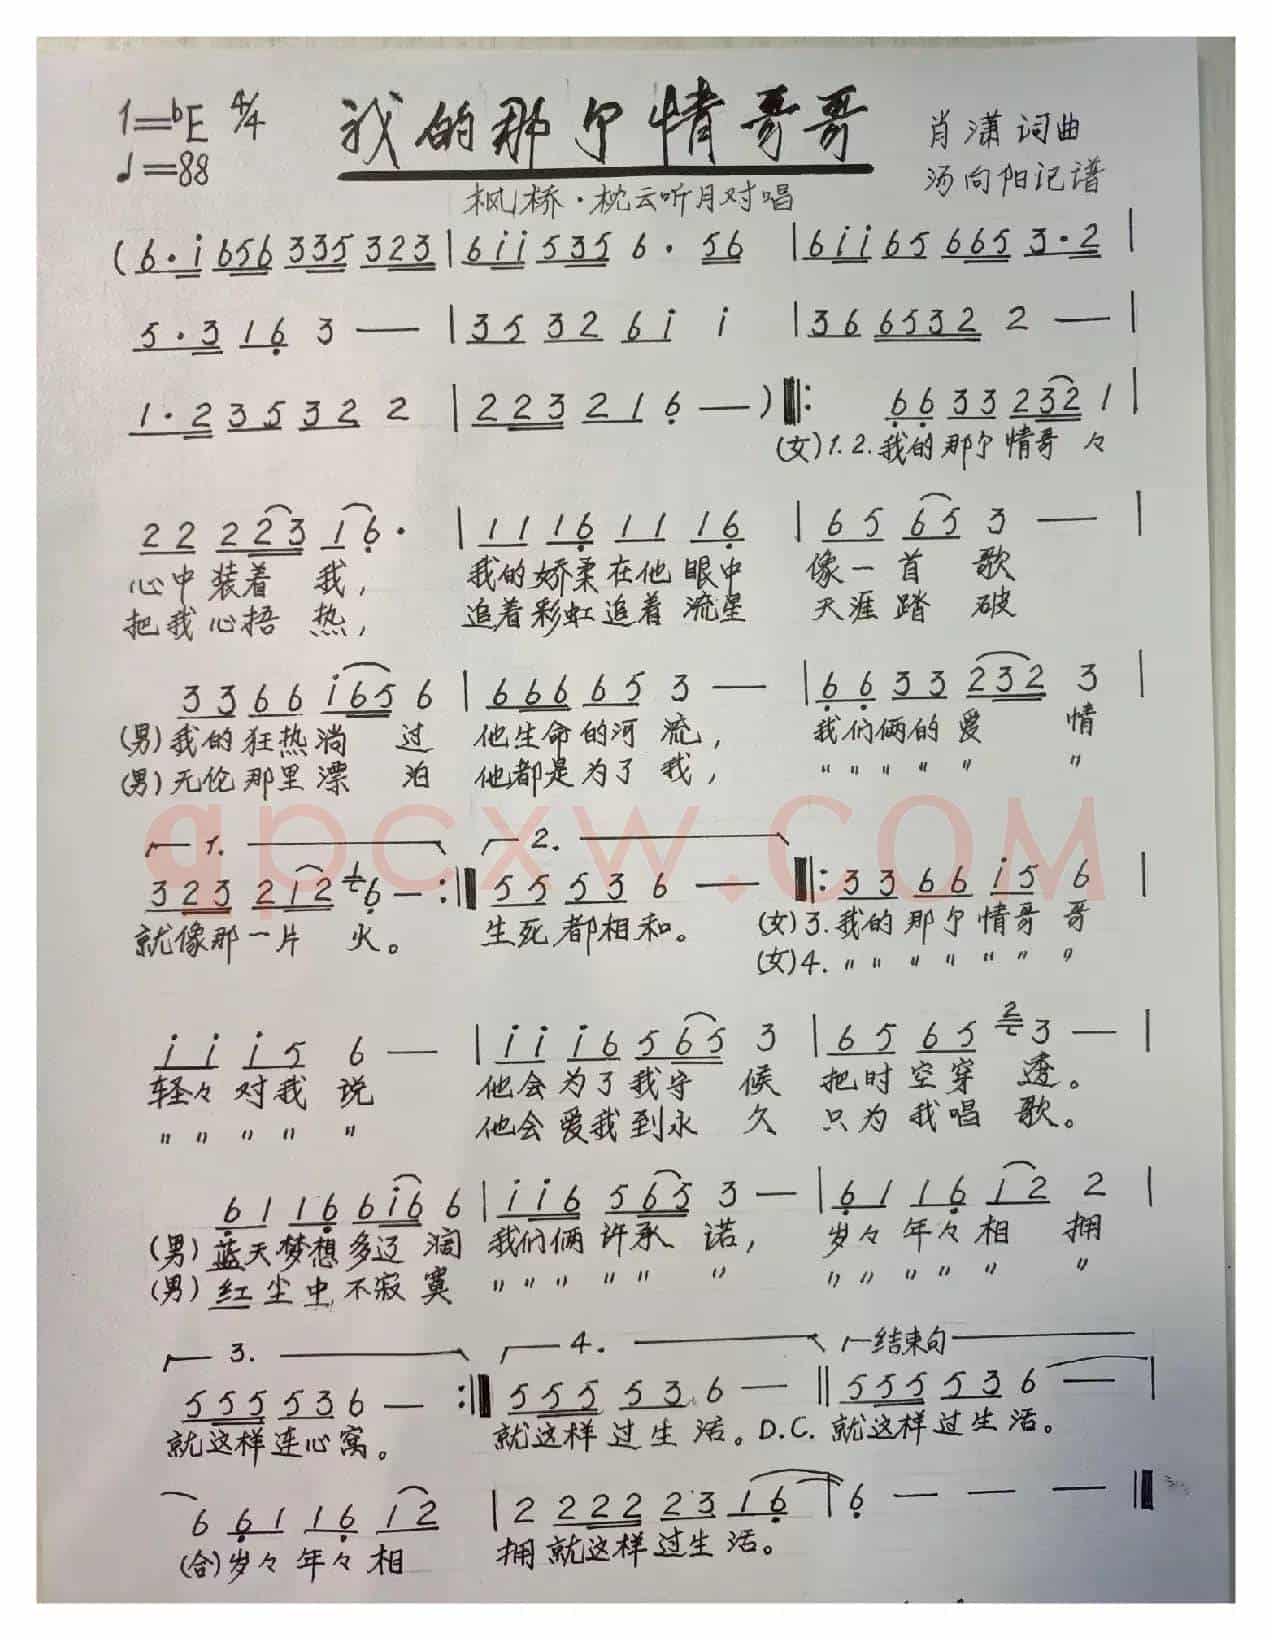 1=♭E 4/4 我的那个情哥哥 肖潇词曲
♩=88 汤向阳记谱
枫桥·枕云听月对唱
(6·i 656 335 323 | 6ii 535 6· 56 | 6ii65 665 3·2 |
5·3 16 3 — | 35 32 6i i | 36 6532 2 — |
1·2 35 32 2 | 223 21 6 — ) ‖: 66 33 232 1 |
(女)1.2.我的那个情哥々
22 223 16· | 11 16 11 16 | 65 65 3 — |
心中装着我, 我的娇柔在他眼中 像一首歌
把我心捂热, 追着彩虹追着流星 天涯踏破
33 66 i65 6 | 666 65 3 — | 66 33 232 3 |
(男)我的狂热淌过 他生命的河流, 我们俩的爱情
(男)无伦那里漂泊 他都是为了我, 〃〃〃〃〃〃
1. 2.
323 212 1 6 — :‖ 55 53 6 — ‖: 33 66 i5 6 |
就像那一片火。 生死都相和。 (女)3.我的那个情哥哥
(女)4.〃〃〃〃〃〃〃
ii i5 6 — | ii i6 565 3 | 65 65 2 3 — |
轻々对我说 他会为了我守候 把时空穿透。
〃〃〃〃〃 他会爱我到永久 只为我唱歌。
61 16 6i6 6 | ii6 565 3 — | 61 16 12 2 |
(男)蓝天梦想多辽阔 我们俩许承诺, 岁々年々相拥
(男)红尘中不寂寞 〃〃〃〃〃〃 〃〃〃〃〃〃
3. 4. 结束句
555 53 6 — :‖ 555 53 6 — ‖ 555 53 6 — |
就这样连心窝。 就这样过生活。D.C. 就这样过生活。
6 61 16 12 | 2 2222 23 16 | 6 — — — ‖
(合)岁々年々相 拥就这样过生活。
qpcxw.COM